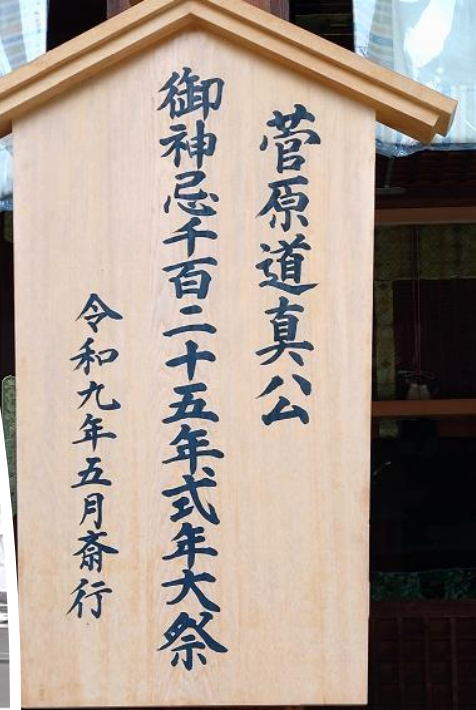 菅原道真公
御神忌千百二十五年式年大祭
令和九年五月斎行